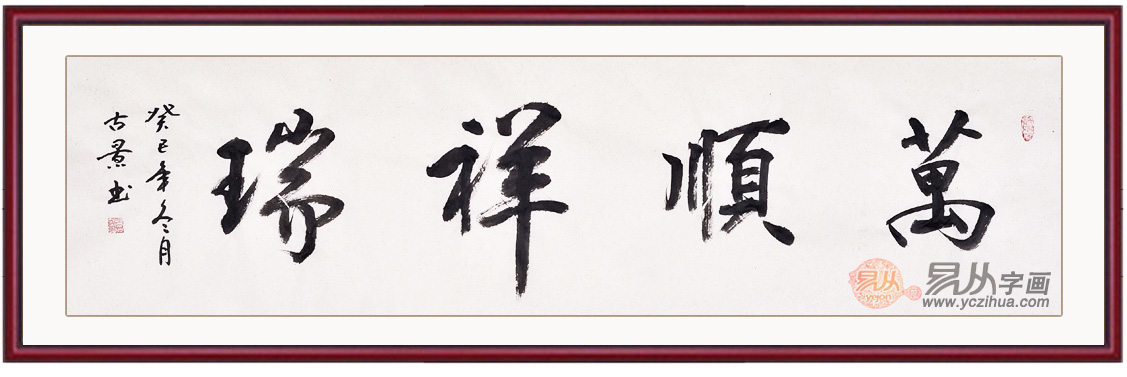 萬順祥瑞
癸巳年冬月
古景书
易从
yicon
易从字画
www.yczihua.com